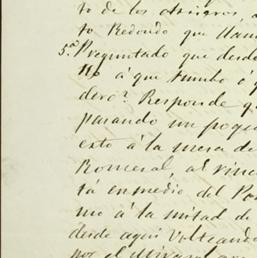 to de los Arrieros, a
to Redondo que llam
5ª Preguntado que desde
No á que rumbo é q
dero? Responde q
parando un poqu
esto á la mesa de
Romeral, al rinc
tá en medio del Po
mo á la mitad de
desde aqui Volteando
por el